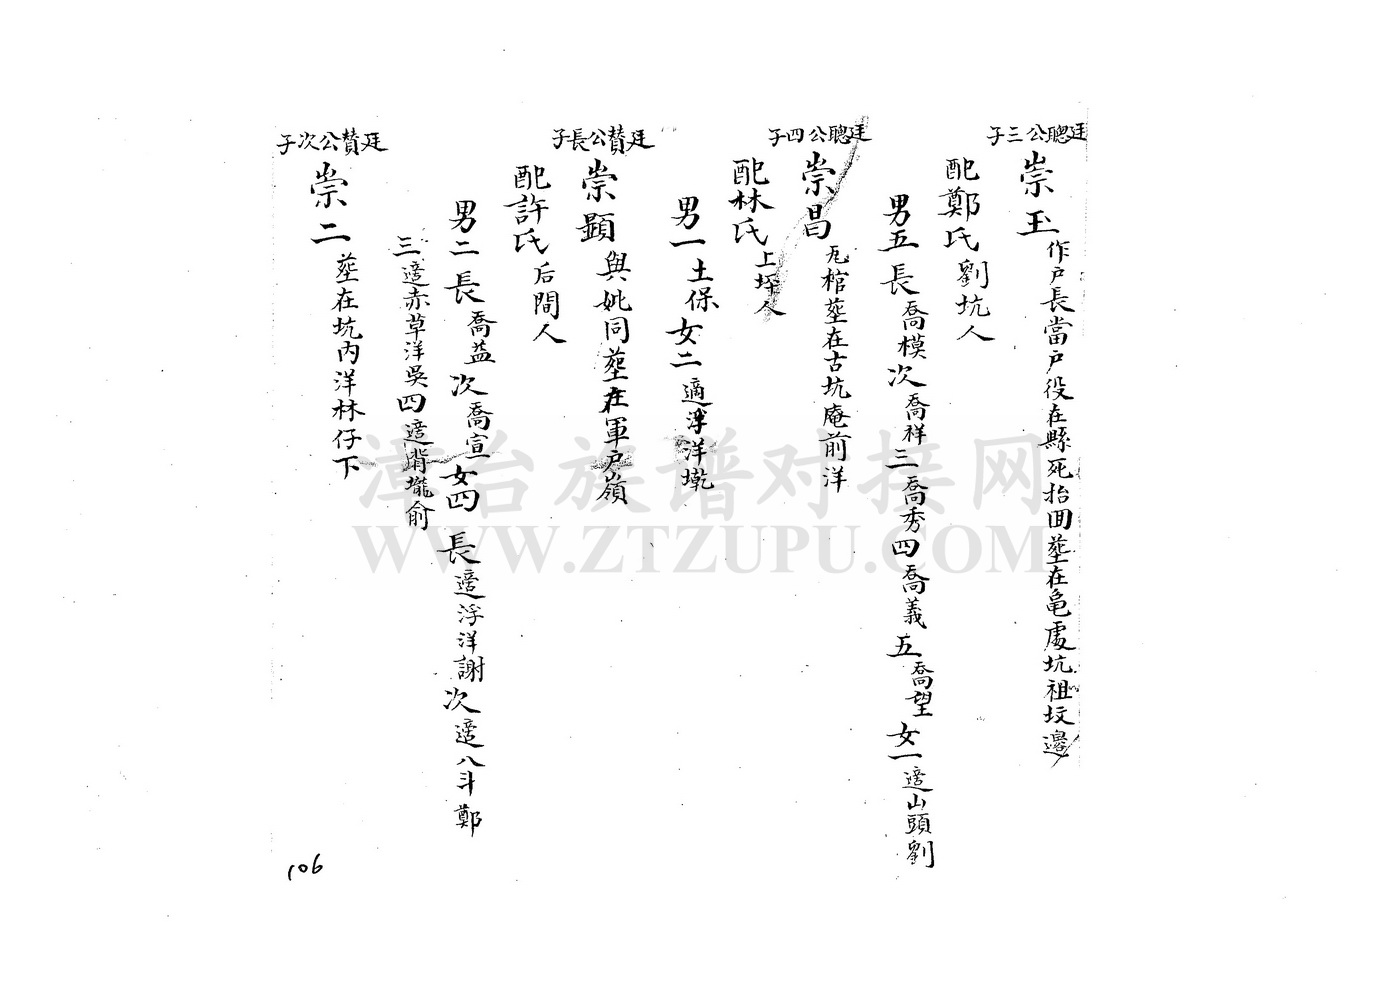 廷聰公三子
崇玉 作戶長當戶役在縣死抬回塟在龜處坑祖坟邊
配鄭氏 劉坑人
男五 長喬模 次喬祥 三喬秀 四喬義 五喬望 女一 適山頭劉
廷聰公四子
崇昌 瓦棺塟在古坑庵前洋
配林氏 上坪人
男一 土保 女二 適浮洋墘
廷贊公長子
崇顕 與妣同塟在軍戶嶺
配許氏 后間人
男二 長喬益 次喬宣 女四 長適浮洋謝 次適八斗鄭
三適赤草洋吳 四適壠俞
廷贊公次子
崇二 塟在坑內洋林仔下
106
津台族谱对接网
WWW.ZTZUPU.COM